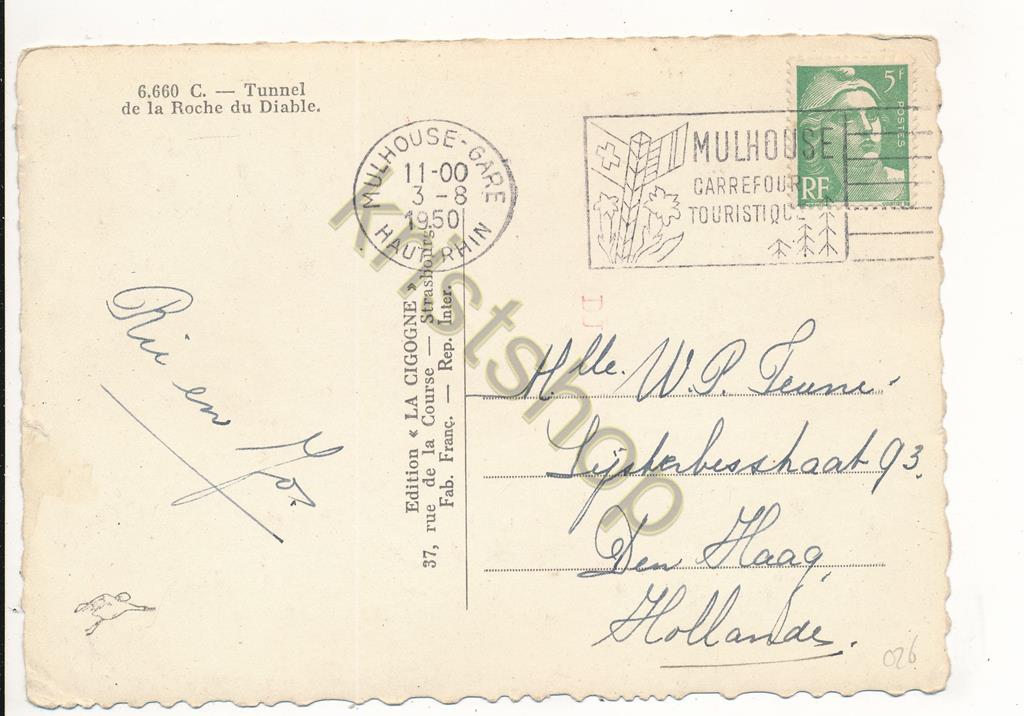 6.660 C. — Tunnel
de la Roche du Diable.
MULHOUSE-GARE
11-00
3 -8
1950
HAUT-RHIN
MULHOUSE
CARREFOUR
TOURISTIQUE
5F
POSTES
RF
Rie en Jo.
Edition « LA CIGOGNE »
37, rue de la Course — Strasbourg.
Fab. Franç. — Rep. Inter.
DJ
Mlle. W.P. Teune
Lijsterbesstraat 93.
Den Haag
Hollande.
026
kristshop